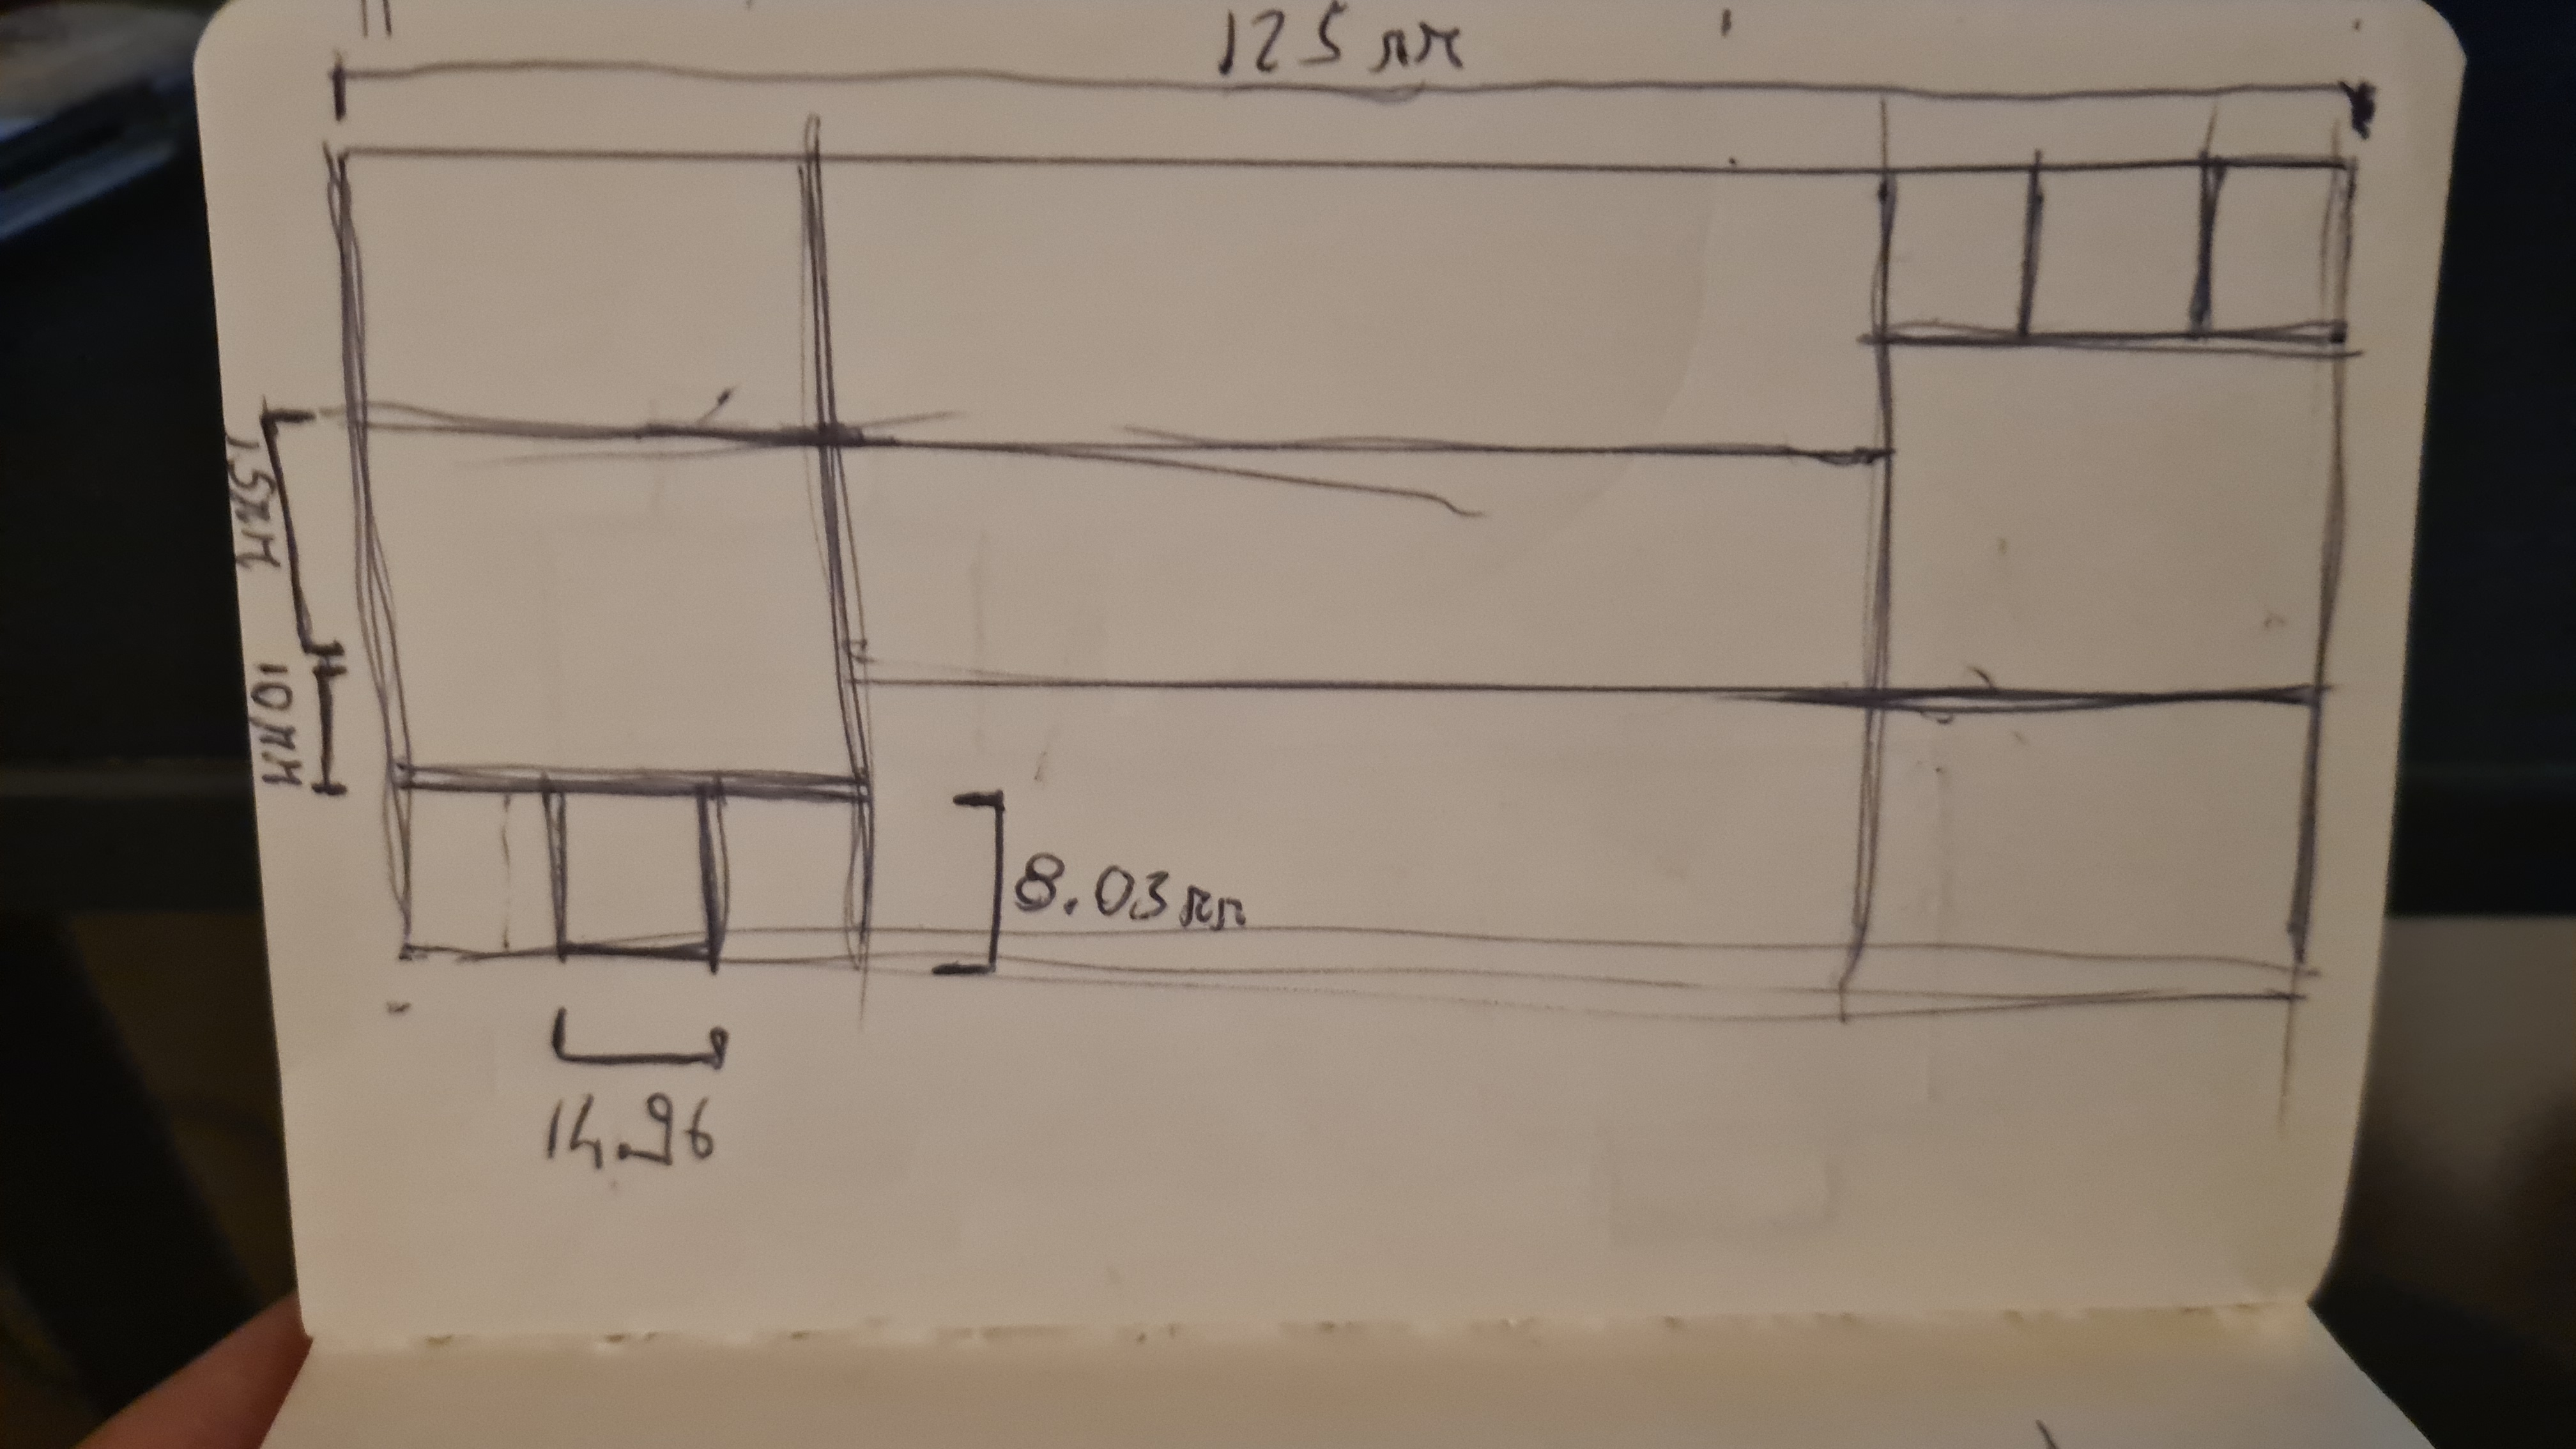 125 mm
15mm
10mm
8.03mm
14.96